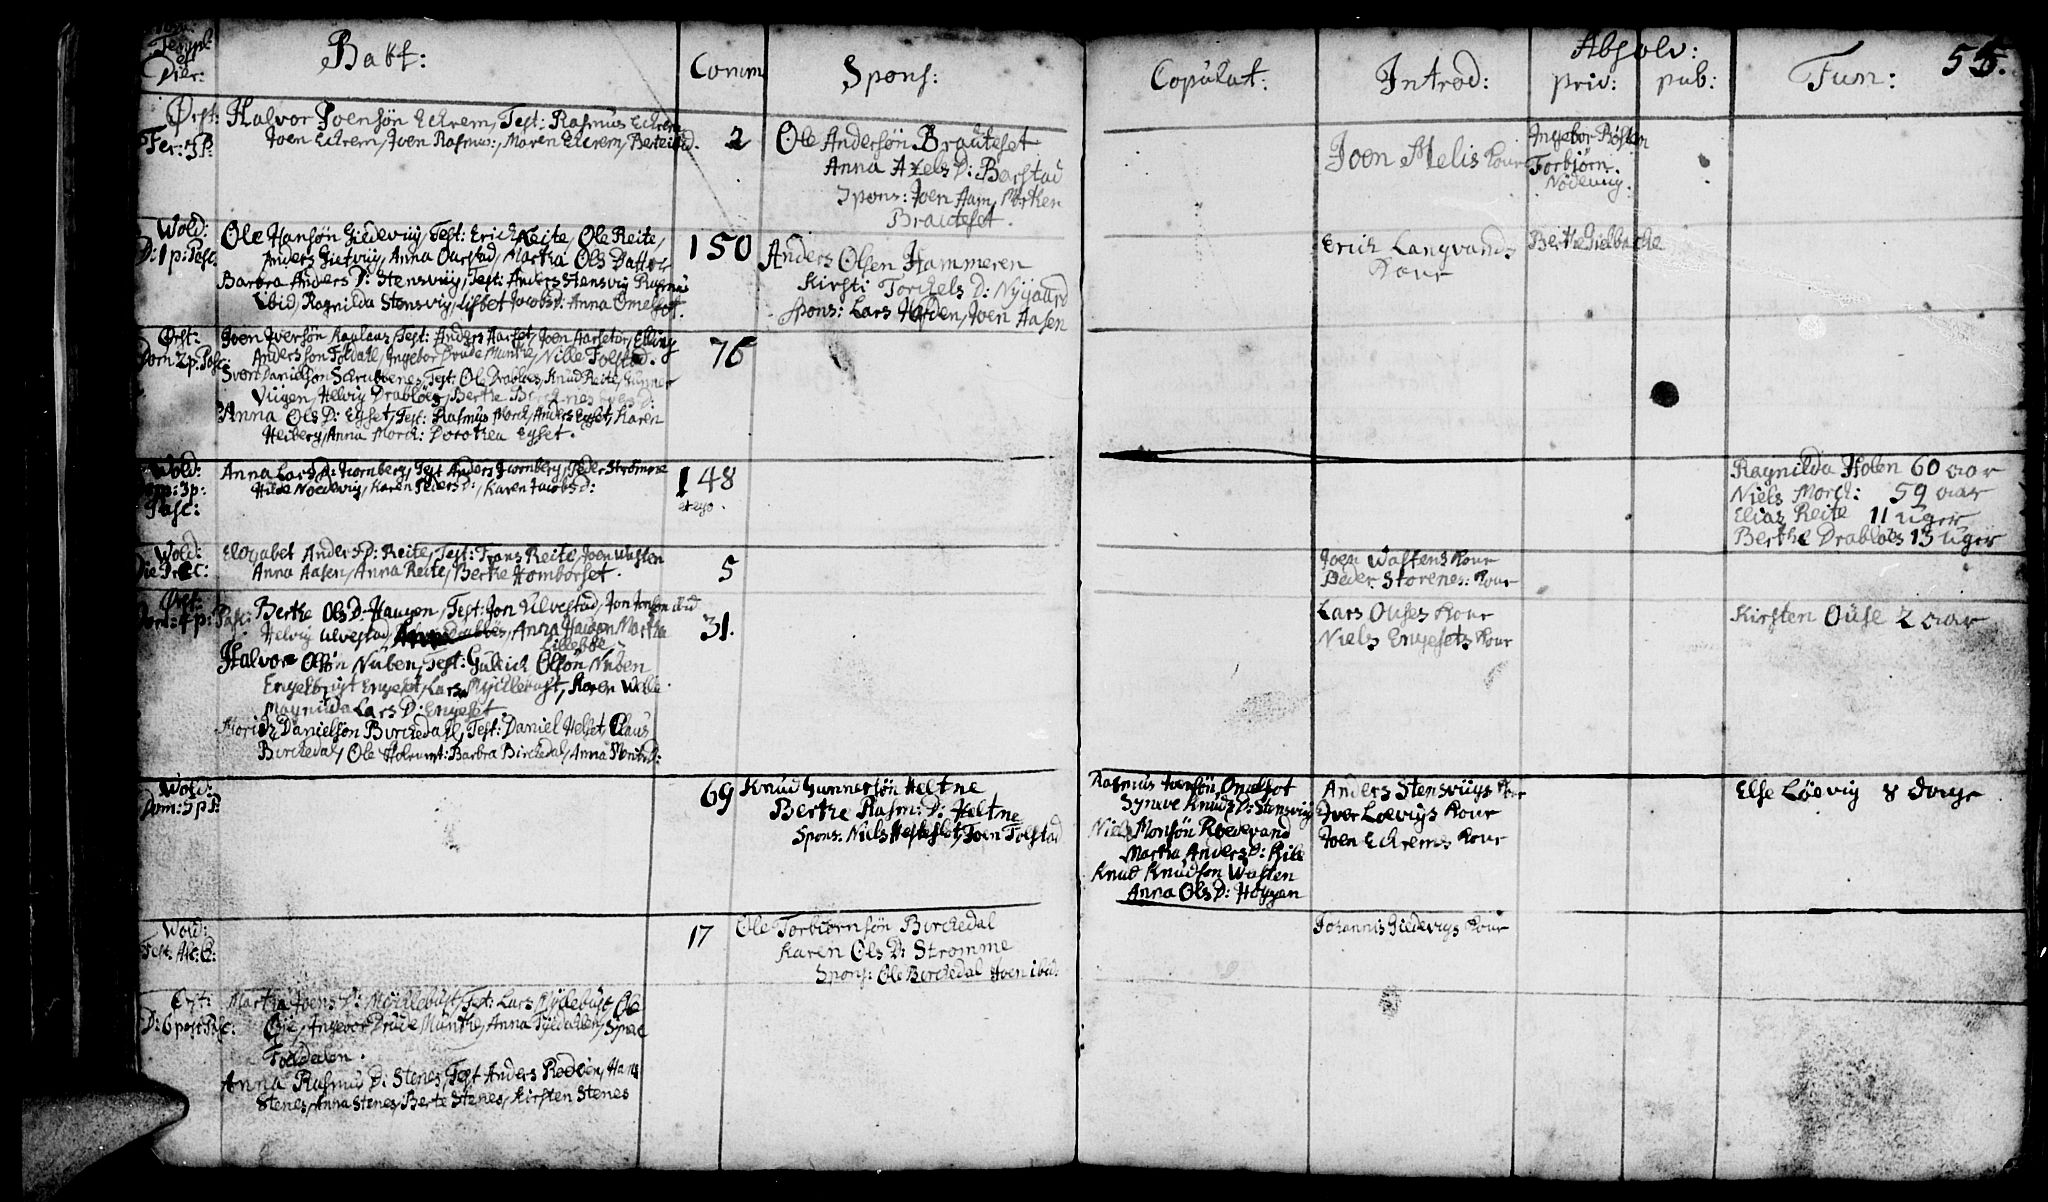 Templ:
et
Dier:
Babt:
Comm
Spons:
Copulat:
Introd:
Absolv:
priv:
pub:
Fun:
55.
Ørst:
Fer: 3 P:
Halvor Joensøn Eckrem, Test: Rasmus Eckrem
Joen Eckrem, Joen Rasmus:, Maren Eckrem, Berte ibid.
2
Ole Andersøn Brauteset
Anna Axels D: Barstad
Spons: Joen Ham, Morken
Brauteset.
Joen Melis Kone
Ingebor Røsten
Torbiørn
Nødevig.
Wold:
D: 1 p: Pasc:
Ole Hansøn Giedeviig, Test: Erich Reite, Ole Reite,
Anders Gietviig, Anna Ourstad, Martha Ols Datter
Barbra Anders D: Stensviig, Test: Anders Stensviig Rasmus
ibid, Ragnilda Stensviig, Lisbet Jacobs D: Anna Omelsot.
150
Anders Olsen Hammeren
Kirsti Torchels D: Nygaard
Spons: Lars Holden, Joen Aasen
Erich Langvands
Kone
Berthe Gielbache
Ørst:
Dom 2 p: Pasc:
Joen Iversøn Raplaus, Test: Anders Aarset, Joen Aarsetør, Elling
Andersson Foldall, Ingebor Drude Munthe, Nille Folstad.
Svend Danielson Scrubbenes, Test: Ole Drabløes, Knud Reite, Gunner
Viigen, Helvig Drabløes, Berthe
Anna Ols D: Egset, Test: Rasmus Morch, Anders Egset, Karen
Heiberg, Anna Morch: Dorothea Egset.
76
Wold:
Dom: 3 p:
Pasc:
Anna Lars D: Hornberg, Test Anders Hornberg, Peder Strømme
Hilde Noedevig, Karen Peders D:, Karen Jacobs D:
148
et ego.
Ragnilda Holen 60 aar
Niels Morch: 59 aar
Elias Reite 11 uger
Berthe Drabløes 13 uger
Wold:
Die Prec:
Elizabet Anders D: Reite, Test: Frans Reite, Joen Wasten
Anna Aasen, Anna Reite, Berthe Homborset.
5
Joen Wastens Kone
Peder Storenes: Kone
Ørst:
Dom: 4 p: Pasc:
Berthe Ols D: Haugen, Test: Jon Ulvestad, Jon Jonsen ibid
Helvig Ulvestad, Anna Haugen Martha
Lillebøe
Halvor Olsøn Nuben, Test: Gulich Olsøn Nuben
Engelbrigt Engeset, Lars Mycklebust, Karen Wolle.
Magnilda Lars D: Engeset
Morich Danielsøn Birckedahl, Test: Daniel Helset, Claus
Birckedal, Ole Holsund: Barbra Birckedal, Anna Monts D:
31.
Lars Ouses Kone
Niels Engesets Kone
Kirsten Ouse 2 aar
Wold:
Dom: 5 p P:
69
Knud Gunnersøn Heltne
Berthe Rasm: D: Heltne
Spons: Niels Hesteflet, Joen Folstad
Rasmus Iversøn Omelsot
Syneve Knuds D: Stensviig
Niels Monsøn Roedevand
Martha Anders D: Rite
Knud Knudson Wasten
Anna Ols D: Høggen
Anders Stensviigs Kone
Iver Loeviigs Kone
Joen Eckrems Kone
Else Løevig 8 dage
Wold:
Fest: Asc: C:
17
Ole Torbiørnsøn Birckedal
Karen Ols D: Strømme
Spons: Ole Birckedal Joen ibid:
Johannis Giedevigs Kone
Ørst:
D: 6 post Pasc:
Martha Joens D: Møcklebust, Test: Lars Myclebust Ole
Øje, Ingebor Drude Munthe, Anna Foldallen, Synve
Foldalen.
Anna Rasmus D: Stenes, Test Anders Rødøen, Hans
Stenes, Anna Stenes, Berte Stenes, Kirsten Stenes